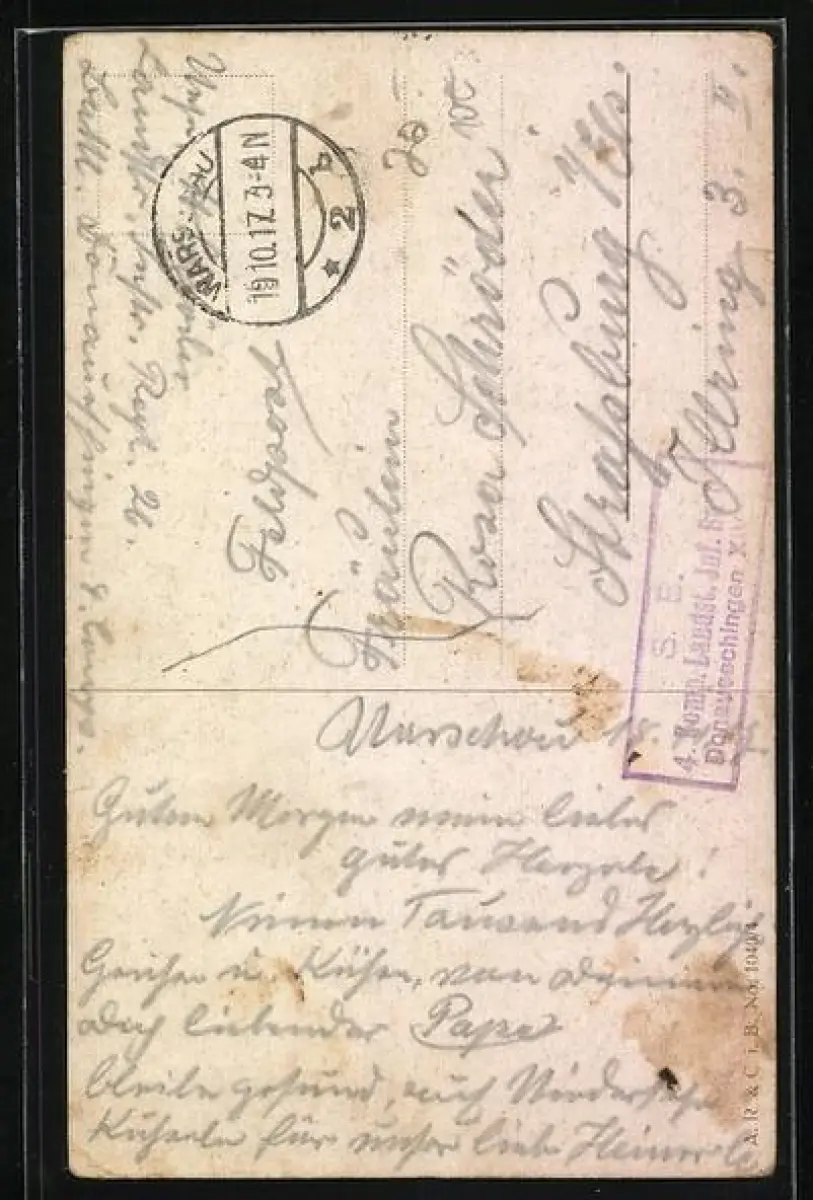 Landstr. Inftr. Regt. 26.
Batl. Donaueschingen 8. Comp.
WARSCHAU
19.10.17. 3-4 N
* 2 b
Feldpost
Fräulein
Rosa Schröder
Straßburg i/Els.
Illring 3. II.
S. B.
4. Komp. Landst. Inf. B
Donaueschingen X
Warschau 18.
Guten Morgen mein liebes
gutes Herzele!
Nimm Tausend Herzlig
Grüße u. Küße, von Deinem
Dich liebender Papa
bleibe gesund, auf Wiedersehn
Küßerle für unser lieb Heinerle
A. R. & C. i. B. No. 1040/4